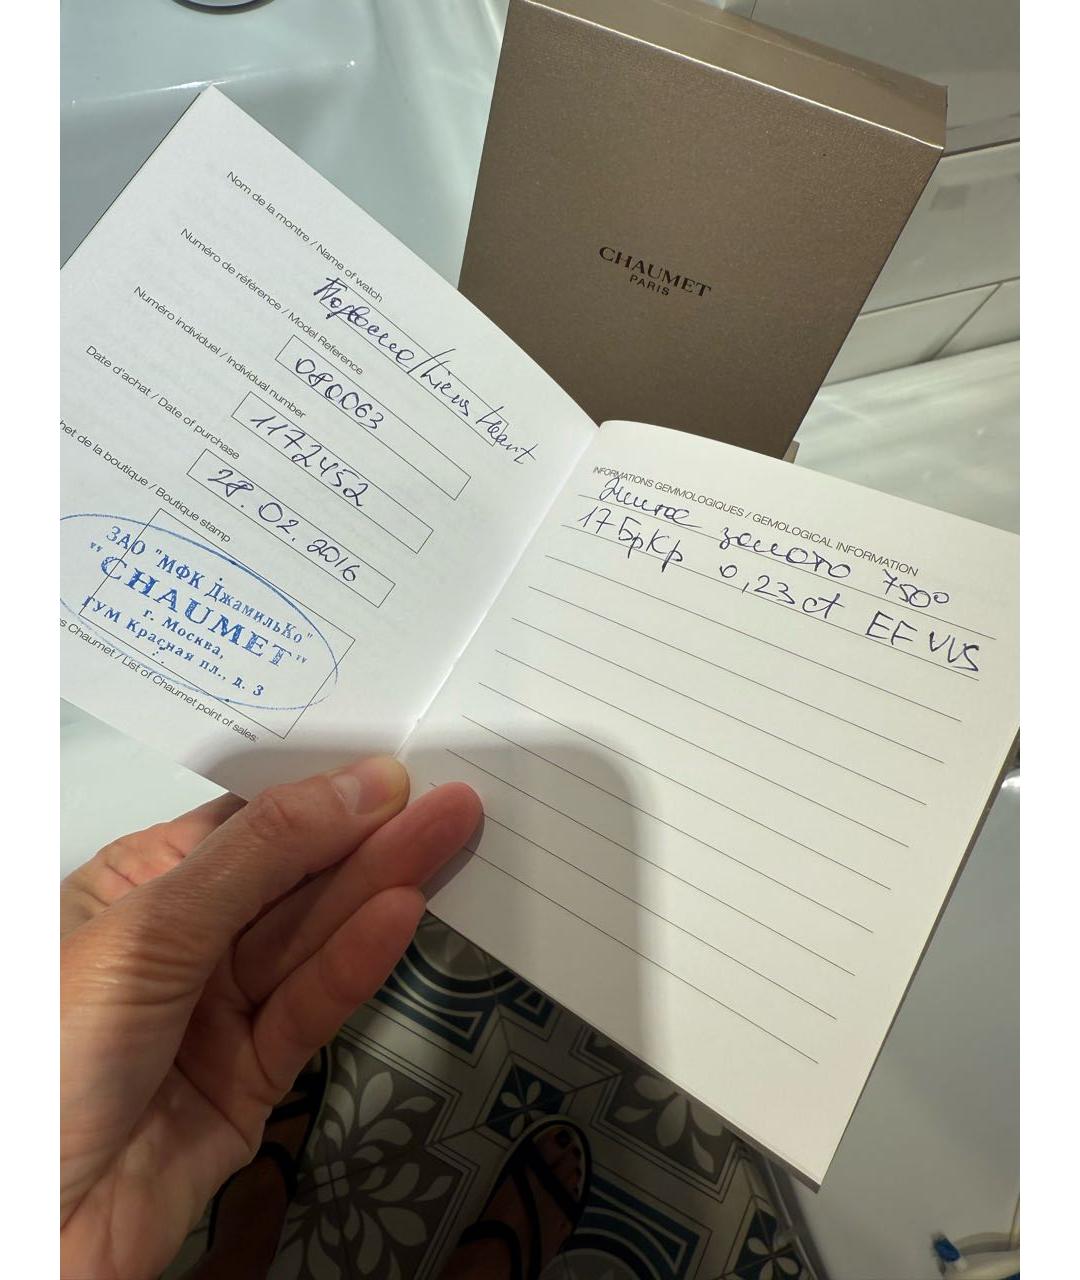 CHAUMET
PARIS
Nom de la montre / Name of watch
Кольцо/Liens Heart
Numéro de référence / Model Reference
080063
Numéro individuel / Individual number
1172452
Date d'achat / Date of purchase
28.02.2016
het de la boutique / Boutique stamp
ЗАО "МФК ДжамильКо"
"CHAUMET"
г. Москва,
ГУМ Красная пл., д. 3
es Chaumet / List of Chaumet point of sales:
INFORMATIONS GEMMOLOGIQUES / GEMOLOGICAL INFORMATION
золото 750°
17БрКр 0,23ct EF VVS